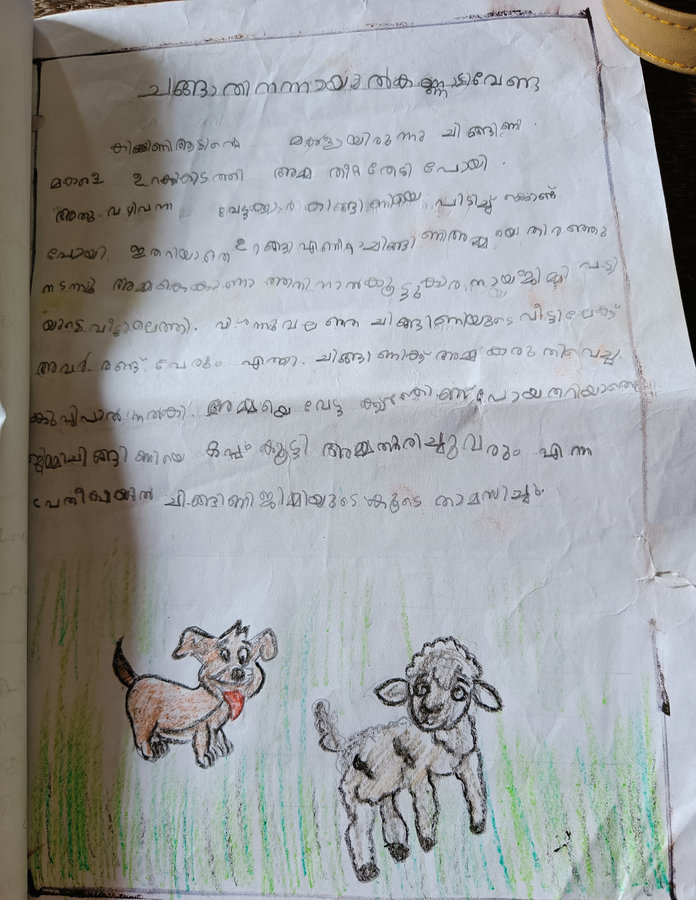 ചങ്ങാതിനന്നായാൽകണ്ണാടിവേണ്ട
കിങ്ങിണിആടിൻ്റെ മകളായിരുന്നു ചിങ്ങിണി.
മകളെ ഉറക്കികിടത്തി അമ്മ തീറ്റതേടി പോയി.
അതു. വഴിവന്ന വേട്ടക്കാർ കിങ്ങിണിയെ പിടിച്ചു കൊണ്ട്
പോയി. ഇതറിയാതെ ഉറങ്ങിഎണീറ്റചിങ്ങിണിഅമ്മയെ തിരഞ്ഞു
നടന്നു അമ്മയെകാണാതെ കൂട്ടുകാരനായജിമ്മി പട്ടി
യുടെ വീട്ടിലെത്തി. ചിങ്ങിണിയുടെ വീട്ടിലേക്ക്
അവർ രണ്ട് പേരും എത്തി. ചിങ്ങിണിക്ക് അമ്മ കരുതിവെച്ച
കുപ്പിപാൽ നൽകി. അമ്മയെ വേട്ടക്കാർ പോയതറിയാതെ
ജിമ്മിചിങ്ങിണിയെ ഒപ്പം കൂട്ടി അമ്മതിരിച്ചുവരും എന്ന
പ്രതീക്ഷയിൽ ചിങ്ങിണിജിമ്മിയുടെ കൂടെ താമസിച്ചു.